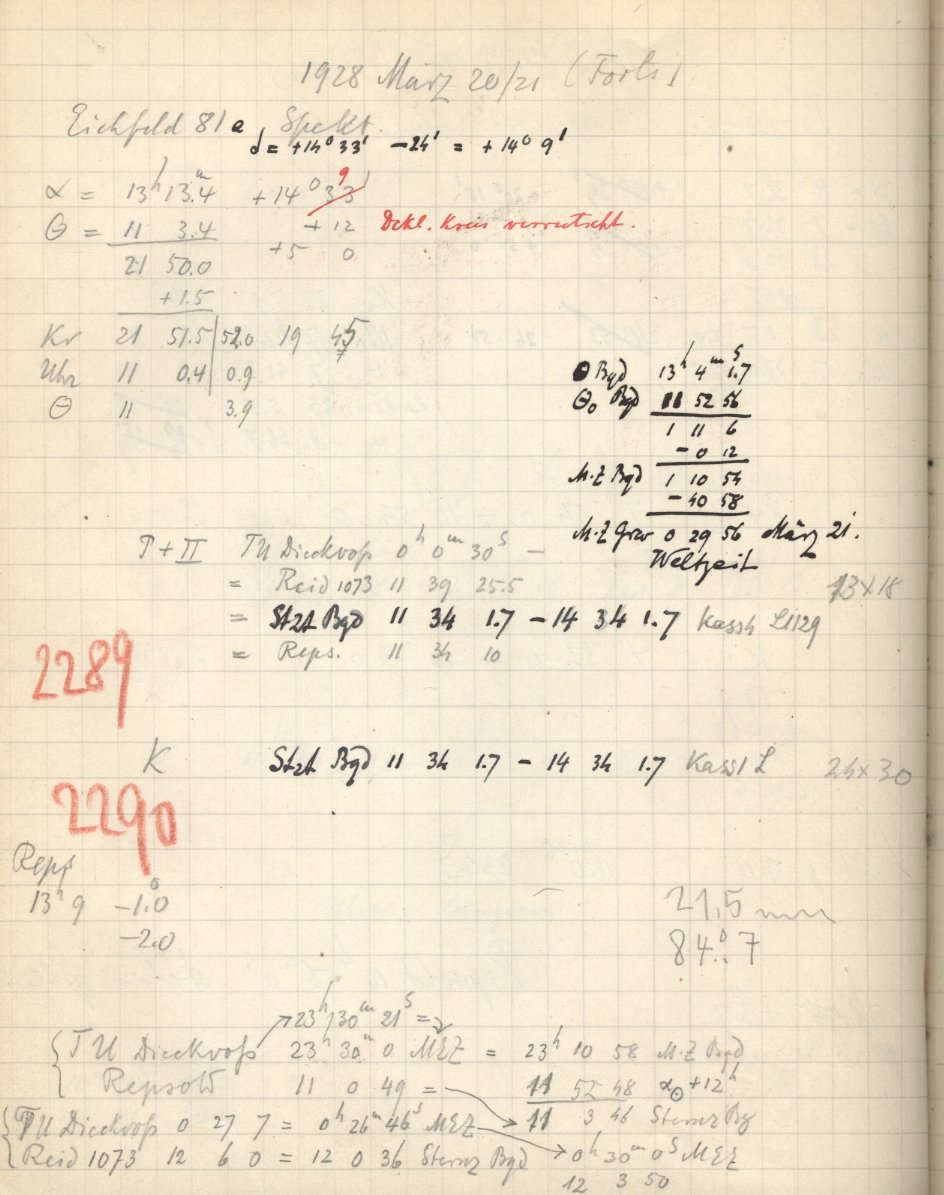 1928 März 20/21 (Forts.)
Eichfeld 81a Spekt.
d = +14° 33' -24' = +14° 9'
α = 13h 13.m4 +14° 33' 9
Θ = 11 3.4 +12 Dekl. Kreis verrutscht.
21 50.0 +5 0
+1.5
Kr 21 51.5 | 52.0 19 45
Uhr 11 0.4 | 0.9
Θ 11 3.9
Θ Bgd 13h 4m 1.s7
Θ₀ Bgd 11 52 56
1 11 6
- 0 12
M.Z Bgd 1 10 54
- 40 58
M.Z Grw 0 29 56 März 21.
Weltzeit
T + II TU Dieckvoß 0h 0m 30s -
= Reid 1073 11 39 25.5 13x18
= Stzt Bgd 11 34 1.7 - 14 34 1.7 Kass4 L1129
= Reps. 11 34 10
2289
K Stzt Bgd 11 34 1.7 - 14 34 1.7 Kass1 L 24x30
2290
Reps
13h 9 -1.°0
-2.0
21,5 mm
84.°7
23h 30m 21s =
TU Dieckvoß 23h 30m 0 MEZ = 23h 10 58 M.Z Bgd
Repsold 11 0 49 = 11 52 48 α☉ +12h
TU Dieckvoß 0 27 7 = 0h 26m 46s MEZ 11 3 46 Sternz Bg
Reid 1073 12 6 0 = 12 0 36 Sternz Bgd 0h 30m 0s MEZ
12 3 50